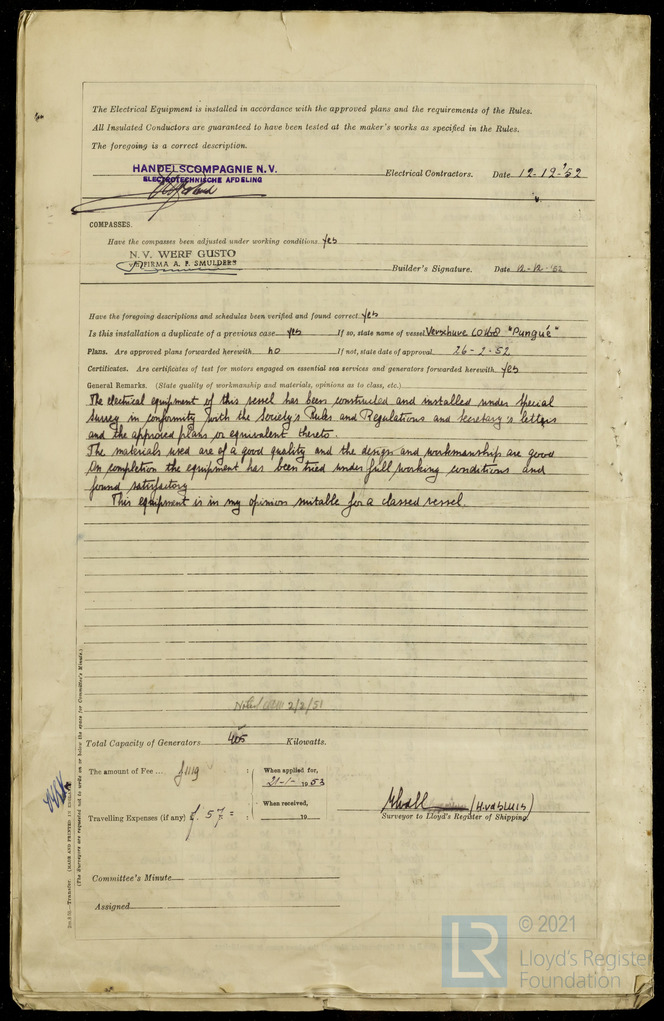 The Electrical Equipment is installed in accordance with the approved plans and the requirements of the Rules.
All Insulated Conductors are guaranteed to have been tested at the maker's works as specified in the Rules.
The foregoing is a correct description.
HANDELSCOMPAGNIE N.V.
ELECTROTECHNISCHE AFDELING
Electrical Contractors. Date 12-12-'52
COMPASSES.
Have the compasses been adjusted under working conditions. yes
N.V. WERF GUSTO
FIRMA A. F. SMULDERS
Builder's Signature. Date 12-12-'52
Have the foregoing descriptions and schedules been verified and found correct. yes
Is this installation a duplicate of a previous case yes If so, state name of vessel Verschure "Pungué"
Plans. Are approved plans forwarded herewith no If not, state date of approval. 26-2-52
Certificates. Are certificates of test for motors engaged on essential sea services and generators forwarded herewith. yes
General Remarks. (State quality of workmanship and materials, opinions as to class, etc.)
The electrical equipment of this vessel has been constructed and installed under Special
Survey in conformity with the Society's Rules and Regulations and secretary's letters
and the approved plans or equivalent thereto.
The materials used are of a good quality and the design and workmanship are good
On completion the equipment has been tried under full working conditions and
found satisfactory
This equipment is in my opinion suitable for a classed vessel.
Noted 2/2/51
Total Capacity of Generators 405 Kilowatts.
The amount of Fee ... f1119 :
When applied for,
21-1-1953
When received,
19
Travelling Expenses (if any) f. 57 = :
(H. vd SLUIS)
Surveyor to Lloyd's Register of Shipping
Committee's Minute
Assigned
(MADE AND PRINTED IN ENGLAND)
(The Surveyors are requested not to write on or below the space for Committee's Minute.)
LR
© 2021
Lloyd's Register
Foundation